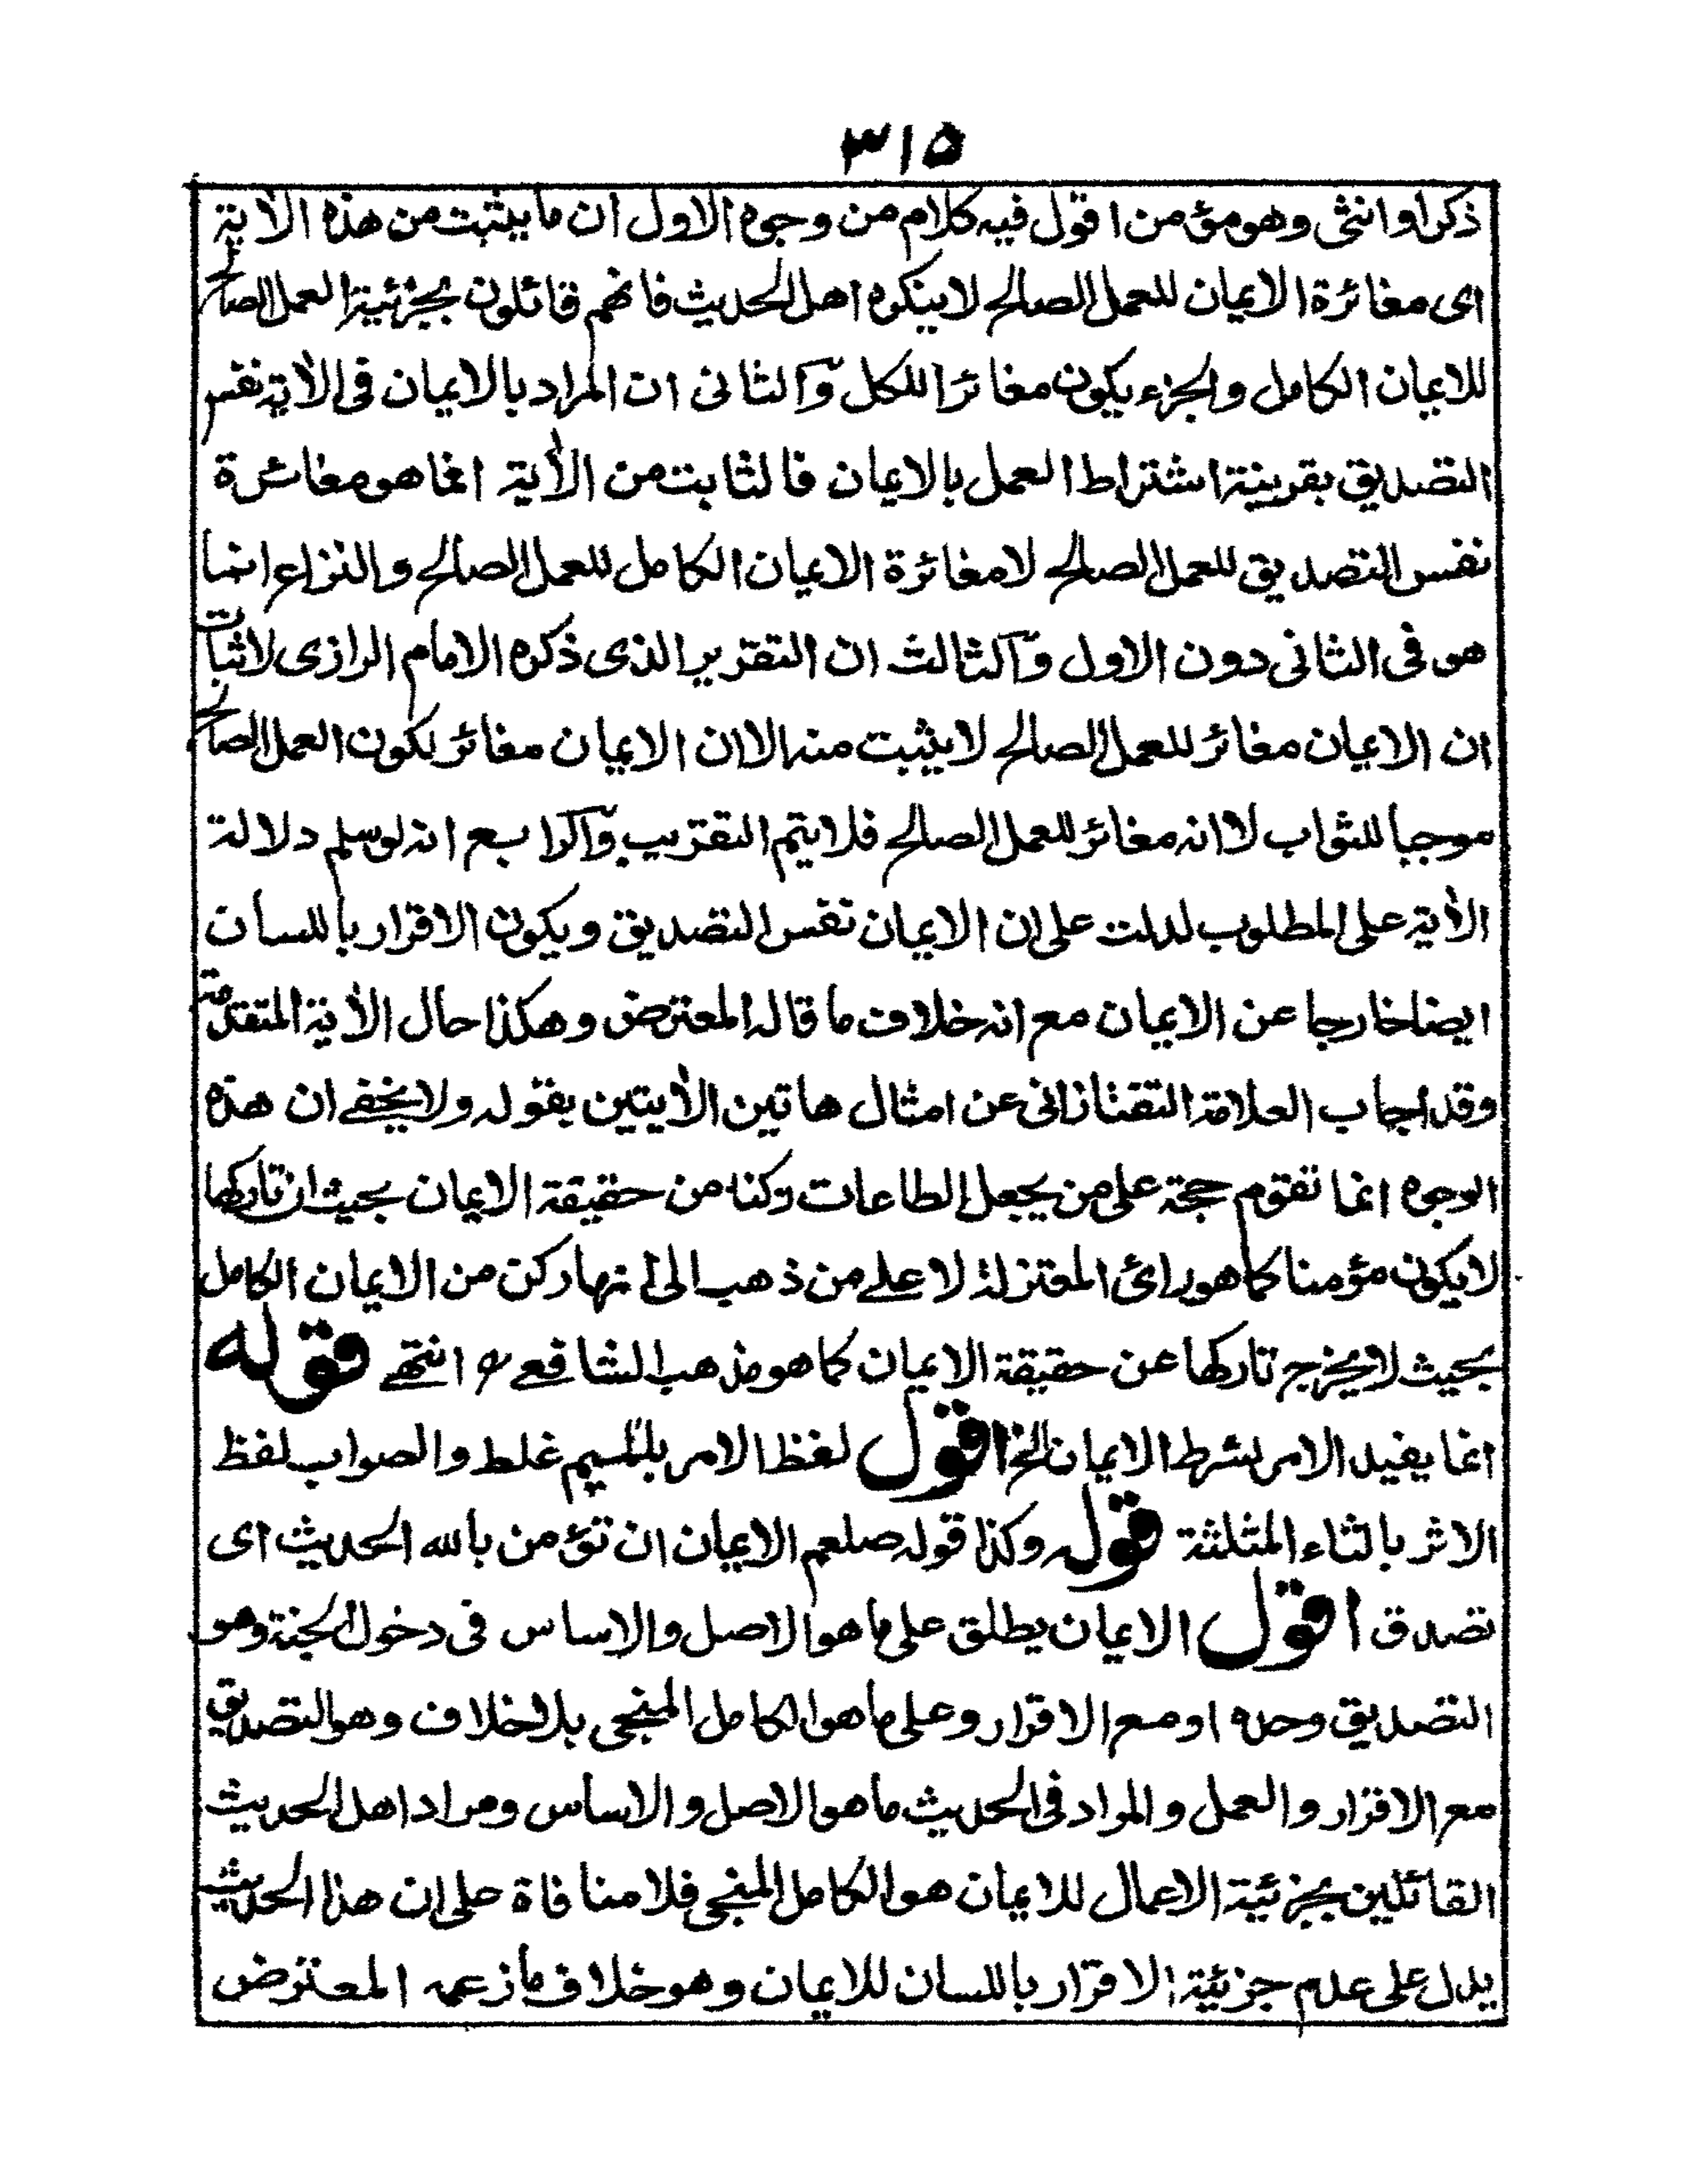 ٣١٥
ذكرا وانثى وهو مؤمن اقول فيه كلام من وجوه الاول ان ما يثبت من هذه الاٰية
اى مغائرة الايمان للعمل الصالح لا ينكره اهل الحديث فانهم قائلون بجزئية العمل الصالح
للايمان الكامل والجزء يكون مغائرا للكل والثانى ان المراد بالايمان فى الاٰية نفس
التصديق بقرينة اشتراط العمل بالايمان فالثابت من الاٰية انما هو مغائرة
نفس التصديق للعمل الصالح لا مغائرة الايمان الكامل للعمل الصالح والنزاع انما
هو فى الثانى دون الاول والثالث ان التقرير الذى ذكره الامام الرازى لاثبات
ان الايمان مغائر للعمل الصالح لا يثبت منه الا ان الايمان مغائر لكون العمل الصالح
موجبا للثواب لا انه مغائر للعمل الصالح فلا يتم التقريب والرابع انه لو سلم دلالة
الاٰية على المطلوب لدلت على ان الايمان نفس التصديق ويكون الاقرار باللسان
ايضا خارجا عن الايمان مع انه خلاف ما قاله المعترض وهكذا حال الاٰية المتقدمة
وقد اجاب العلامة التفتازانى عن امثال هاتين الاٰيتين بقوله ولا يخفے ان هذه
الوجوه انما تقوم حجة على من يجعل الطاعات ركنا من حقيقة الايمان بحيث ان تاركها
لا يكون مؤمنا كما هو رائ المعتزلة لا علے من ذهب الى انها ركن من الايمان الكامل
بحيث لا يخرج تاركها عن حقيقة الايمان كما هو مذهب الشافعے رح انتهے قوله
انما يفيد الامر بشرط الايمان الخ اقول لفظ الامر بالميم غلط والصواب لفظ
الاثر بالثاء المثلثة قوله وكذا قوله صلعم الايمان ان تؤمن بالله الحديث اى
تصدق اقول الايمان يطلق على ما هو الاصل والاساس فى دخول الجنة وهو
التصديق وحده او مع الاقرار وعلى ما هو الكامل المنجى بلا خلاف وهو التصديق
مع الاقرار والعمل والمراد فى الحديث ما هو الاصل والاساس ومراد اهل الحديث
القائلين بجزئية الاعمال للايمان هو الكامل المنجى فلا منافاة على ان هذا الحديث
يدل على عدم جزئية الاقرار باللسان للايمان وهو خلاف ما زعمه المعترض